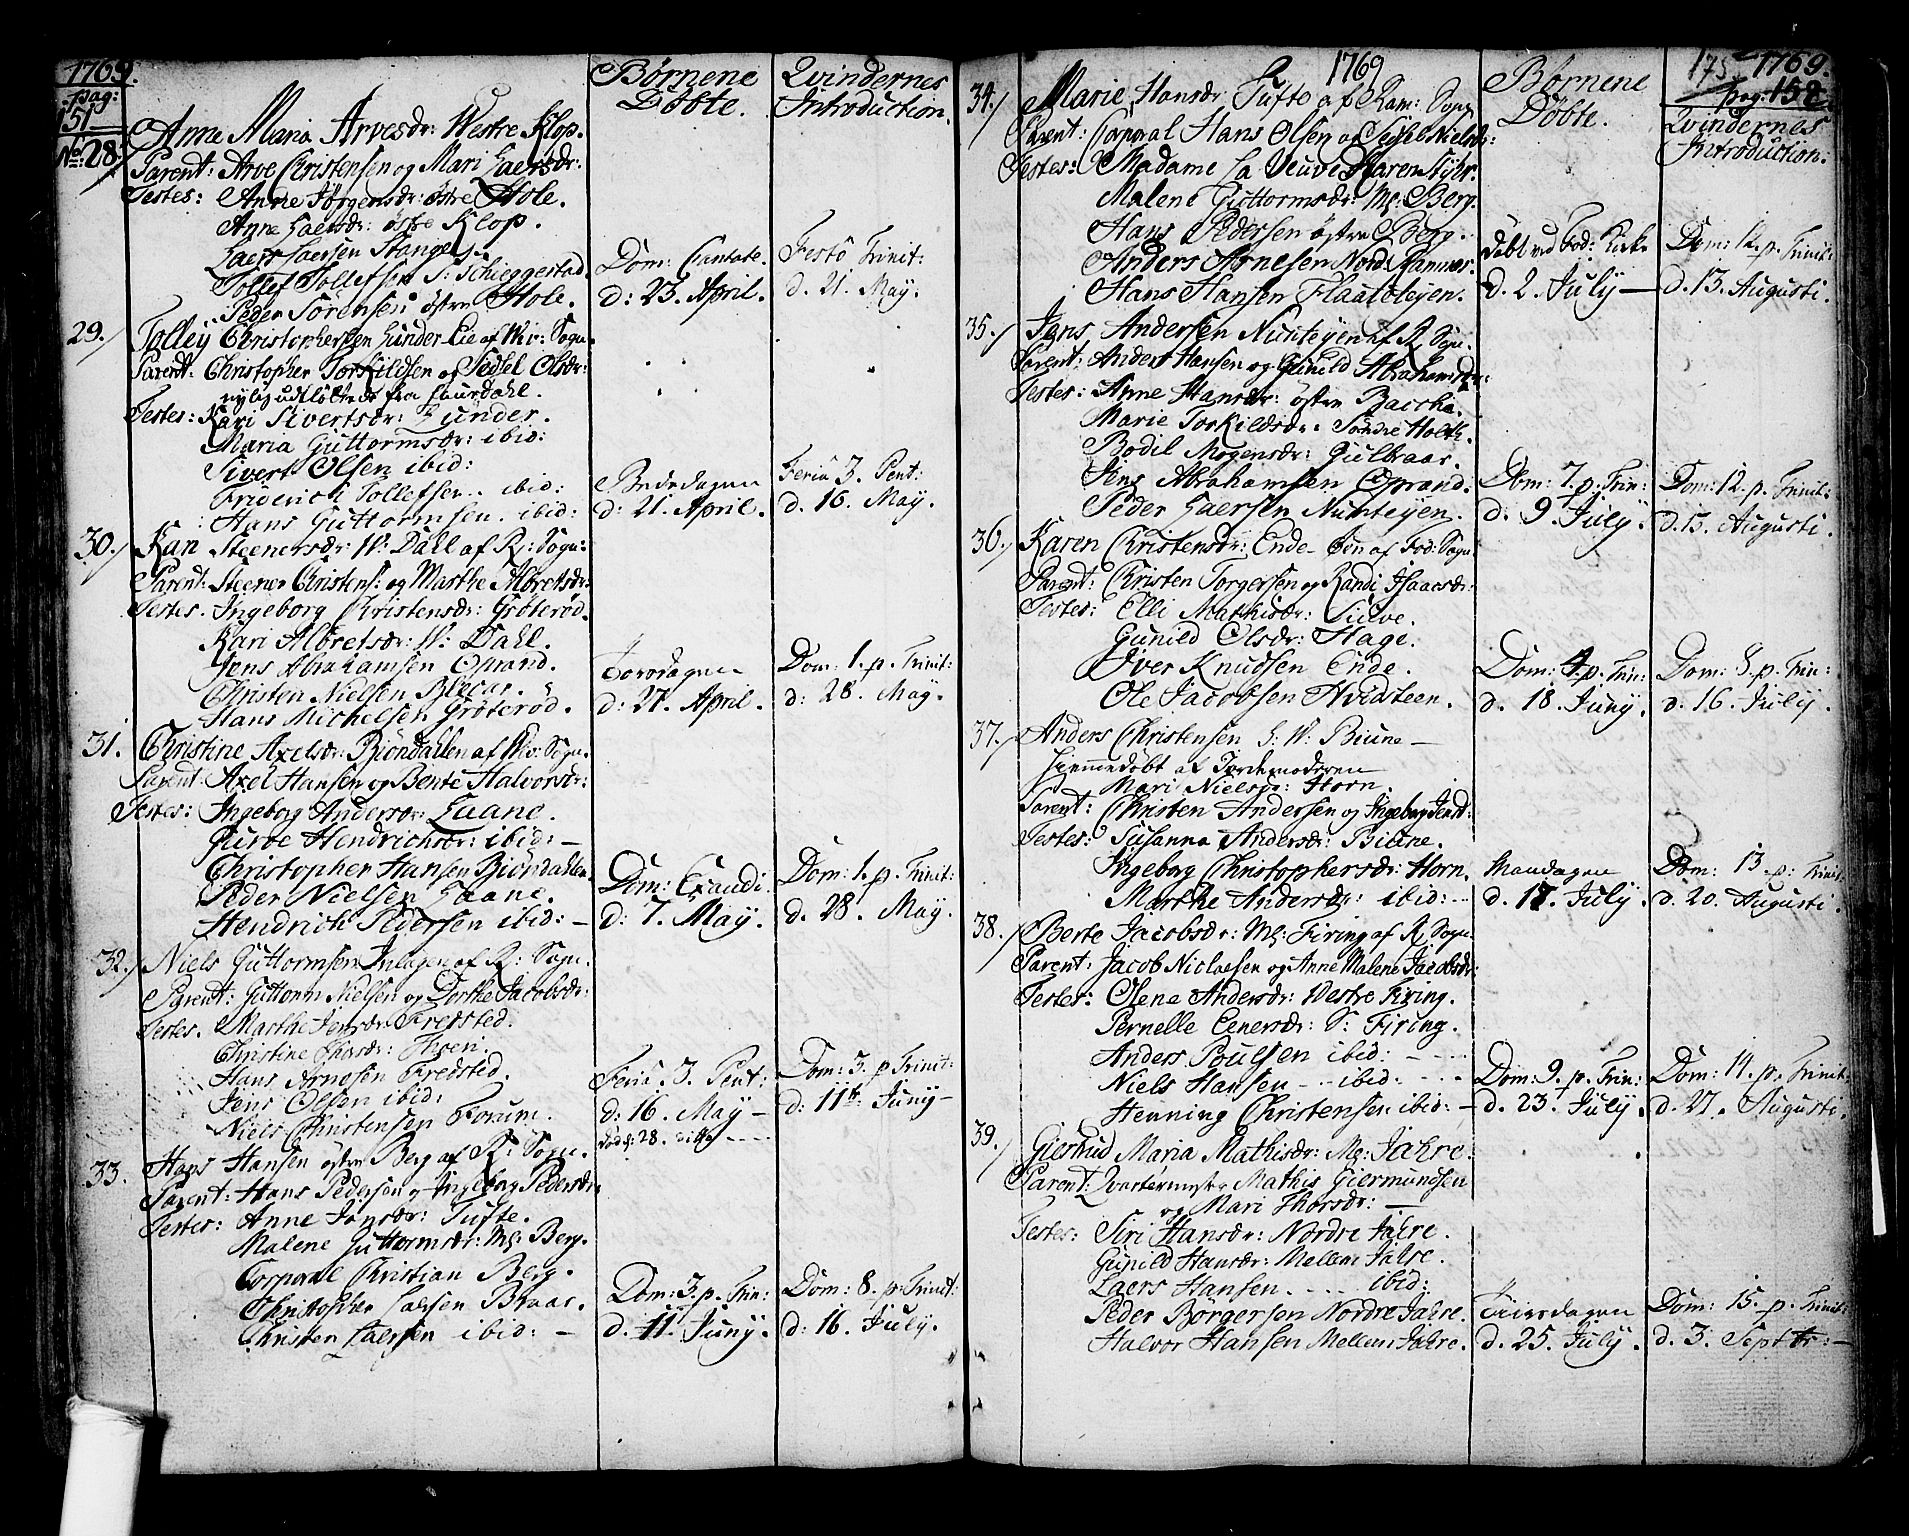 1769.
pag:
151
Børnene
Døbte.
Qvindernes
Introduction.
No: 28.
Anne Maria Arvesdr: Westre Klop.
Parent: Arve Christensen og Mari Laersdr:
Testes: Anne Jørgensdr: østre Hole.
Anne Laersdr: østre Klop.
Laers Laersen Stange
Tollef Tollefsen S: Schieggestad
Peder Sørensen østre Hole.
Dom: Cantate.
d: 23. April.
Festo Trinit:
d. 21. May.
29.
Tolley Christophersen Lunder Eie af Sogn.
Parent: Christopher Torkildsen og Sidsel Olsdr:
nylig udfløttede fra
Testes: Kari Sivertsdr: Lunder.
Maria Guttormsdr: ibid:
Sivert Olsen ibid:
Friderich Tollefsen. ibid:
Hans Guttormsen. ibid:
Bededagen
d: 21. April.
Feria 3. Pent:
d: 16. May.
30.
Kari Steenersdr: W: Dahl af R: Sogn:
Parent: Steener Christens: og Marthe Albretsdr:
Testes. Ingeborg Christensdr: Grøterød.
Kari Albretsdr: W: Dahl.
Jens Abrahamsen Oprand.
Christen Nielsen
Hans Michelsen Grøterød.
Torsdagen
d: 27. April.
Dom: 1. p. Trinit:
d: 28. May.
31.
Christine Axelsdr: Biøndahlen af Sogn.
Parent: Axel Hansen og Bente Halvorsdr:
Testes: Ingeborg Andersdr: Laane.
Gurve Hendrichsdr: ibid: —
Christopher Hansen Biøndahlen.
Peder Nielsen Laane.
Hendrich Pedersen ibid: —
Dom: Exaudi.
d: 7. May.
Dom: 1. p. Trinit:
d. 28. May.
32.
Niels Guttormsen af R: Sogn.
Parent: Guttorm Nielsen og Dorthe Jacobsdr:
Testes. Marthe Jensdr: Fredsted.
Christine
Hans Arnesen Fredsted.
Jens Olsen ibid:
Niels Christensen Forum.
Feria. 3. Pent:
d: 16. May —
død d: 28. ditto
Dom: 3. p Trinit:
d: 11te Juny —
33.
Hans Hansen østre Berg af R: Sogn.
Parent: Hans Pedersen og Ingeborg Pedersdr:
Testes: Anne Jansdr: Tufte.
Malene Guttormsdr: Ml: Berg.
Corporal Christian Berg.
Christopher Laersen Braar.
Christen Laersen ibid: —
Dom: 3. p. Trin:
d. 11te Juny.
Dom: 8. p. Trinit:
d: 16. July.
1769
Børnene
Døbte.
175
1769.
pag: 152
Qvindernes
Introduction.
34.
Marie Hansdr: Tufte af Ram: Sogn
Parent: Corporal Hans Olsen og Nielsdr:
Testes: Madame La Veuve Karen
Malene Guttormsdr: Ml: Berg.
Hans Pedersen østre Berg.
Anders Arnesen Nord: Ramner.
Hans Hansen
Døbt ved Fod: Kirke
d. 2. July —
Dom: 12. p. Trinit:
d. 13. Augusti.
35.
Jens Andersen Nunteyen af R. Sogn.
Parent: Anders Hansen og Gunild Abrahamsdr:
Testes: Anne Hansdr: østre Bacche.
Marie Torkildsdr: Søndre Holth.
Bodil Mogensdr: Gulbaar.
Jens Abrahamsen Oprand.
Peder Laersen Nunteyen.
Dom: 7. p. Trin:
d: 9. July.
Dom: 12. p. Trinit:
d. 13. Augusti.
36.
Karen Christensdr: Ende af Fod: Sogn
Parent: Christen Torgersen og Randi Isaacsdr:
Testes: Elli Mathisdr: Sulve.
Gunild Olsdr: Hage.
Iver Knudsen Ende.
Ole Jacobsen Hvidsteen.
Dom: 4. p. Trin:
d. 18. Juny.
Dom: 8. p. Trin:
d. 16. July.
37.
Anders Christensen S: W: Biune —
Hiemmedøbt af Jordemoderen
Mari Nielsdr: Horn.
Parent: Christen Andersen og Ingeborg Jensd:
Testes: Susanna Andersdr: Biune.
Ingeborg Christophersdr: Horn.
Marthe Andersdr: ibid:
Mandagen
d. 17. July.
Dom: 13. p: Trinit:
d. 20. Augusti.
38.
Berte Jacobsdr: Ml: Firing af R: Sogn
Parent: Jacob Niclaesen og Anne Malene Jacobsdr:
Testes: Olene Andersdr: Westre Firing.
Pernelle Eenersdr: S: Firing.
Anders Poulsen ibid:
Niels Hansen ibid:
Henning Christensen ibid: —
Dom: 9. p. Trin:
d. 23. July.
Dom: 14. p. Trinit:
d. 27. Augusti.
39.
Giertrud Maria Mathisdr: Ml: Jahre.
Parent: Qvartermester Mathis Giermundsen
og Mari Thorsdr: —
Testes: Siri Hansdr: Nordre Jahre.
Gunild Hansdr: Mellem Jahre.
Laers Hansen. ibid:
Peder Børgersen Nordre Jahre.
Halvor Hansen Mellem Jahre.
Tiirsdagen
d. 25. July.
Dom: 15. p. Trinit:
d. 3. Septbr: —